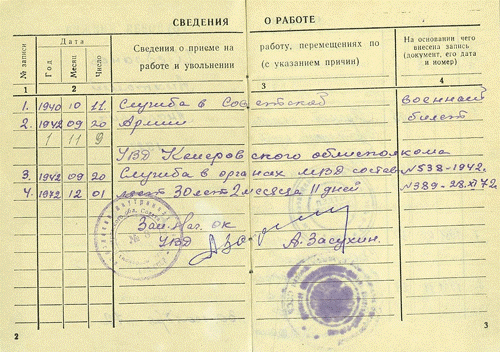 СВЕДЕНИЯ О РАБОТЕ
№ записи
Дата
Год
Месяц
Число
Сведения о приеме на работу, перемещениях по
работе и увольнении (с указанием причин)
На основании чего
внесена запись
(документ, его дата
и номер)
1 2 3 4
1. 1940 10 11 Служба в Советской военный
2. 1942 09 20 Армии билет
1 11 9
УВД Кемеровского облисполкома
3. 1942 09 20 Служба в органах МВД состав- №538-1942.
4. 1972 12 01 ляет 30 лет 2 месяца 11 дней №389-28.XI 72
Зам. нач. ОК
УВД А. Засухин.
2 3